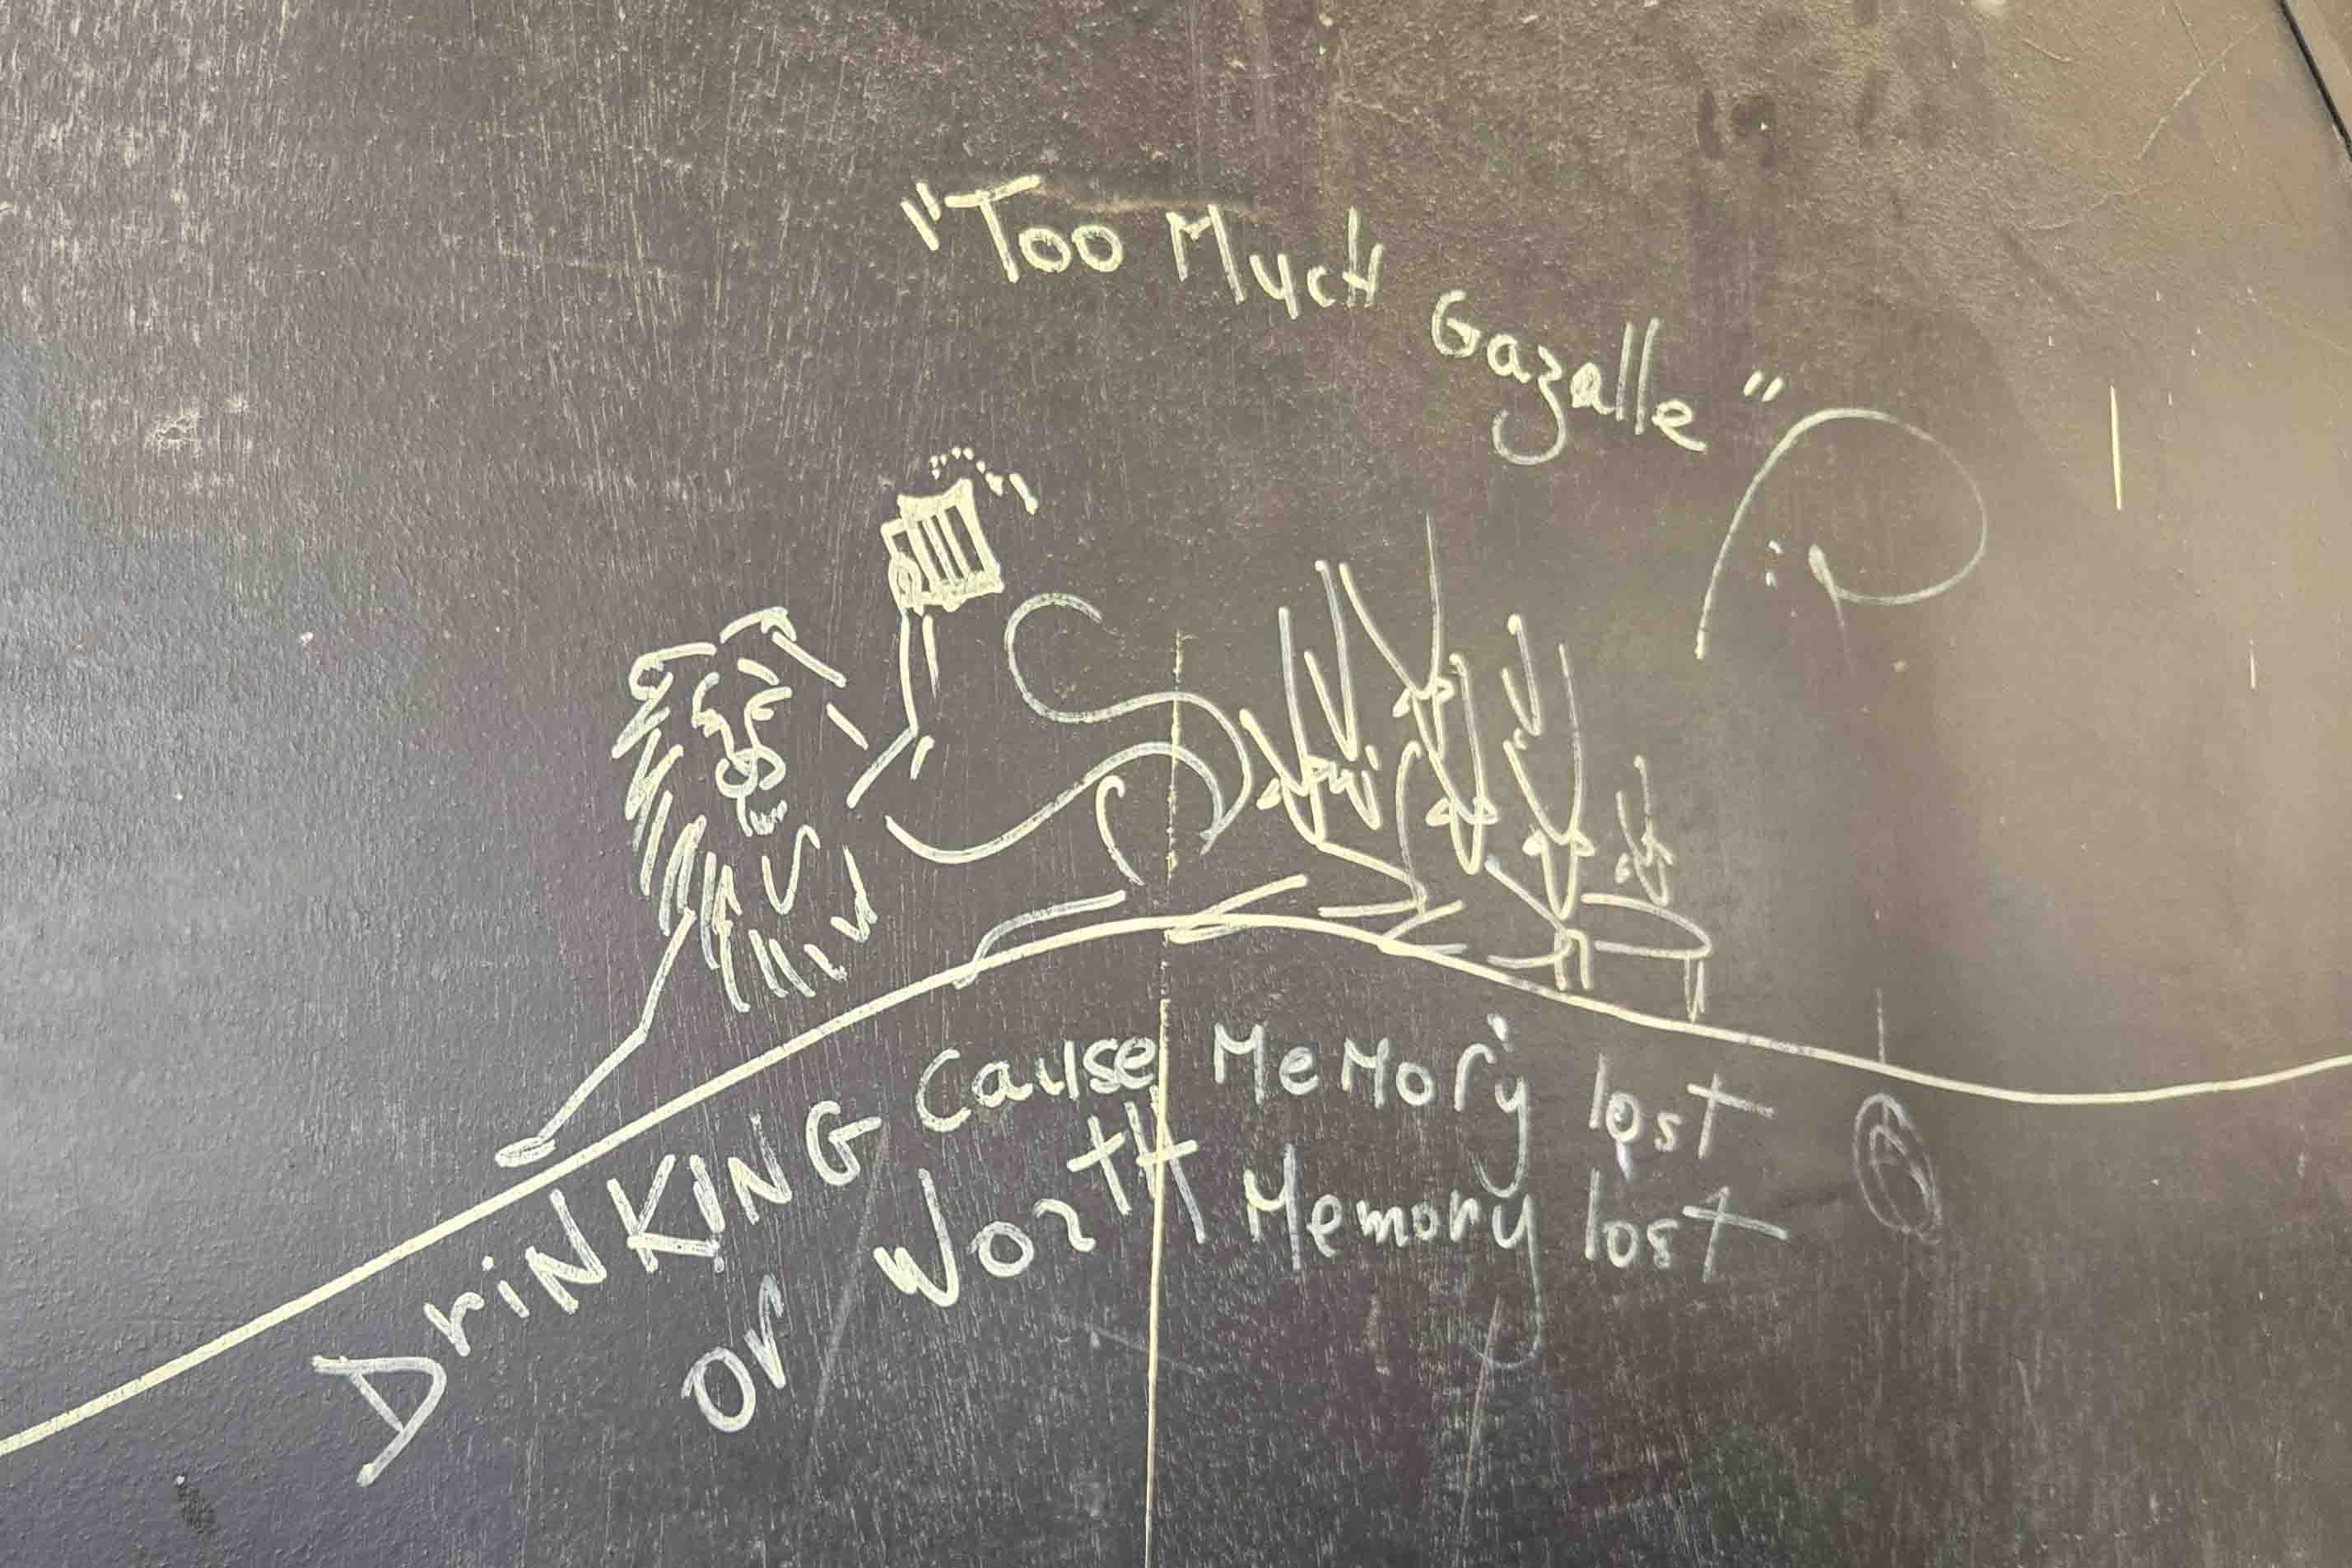 "Too Much Gazalle"
DriNKING Cause Memory lost
or Worth Memory lost